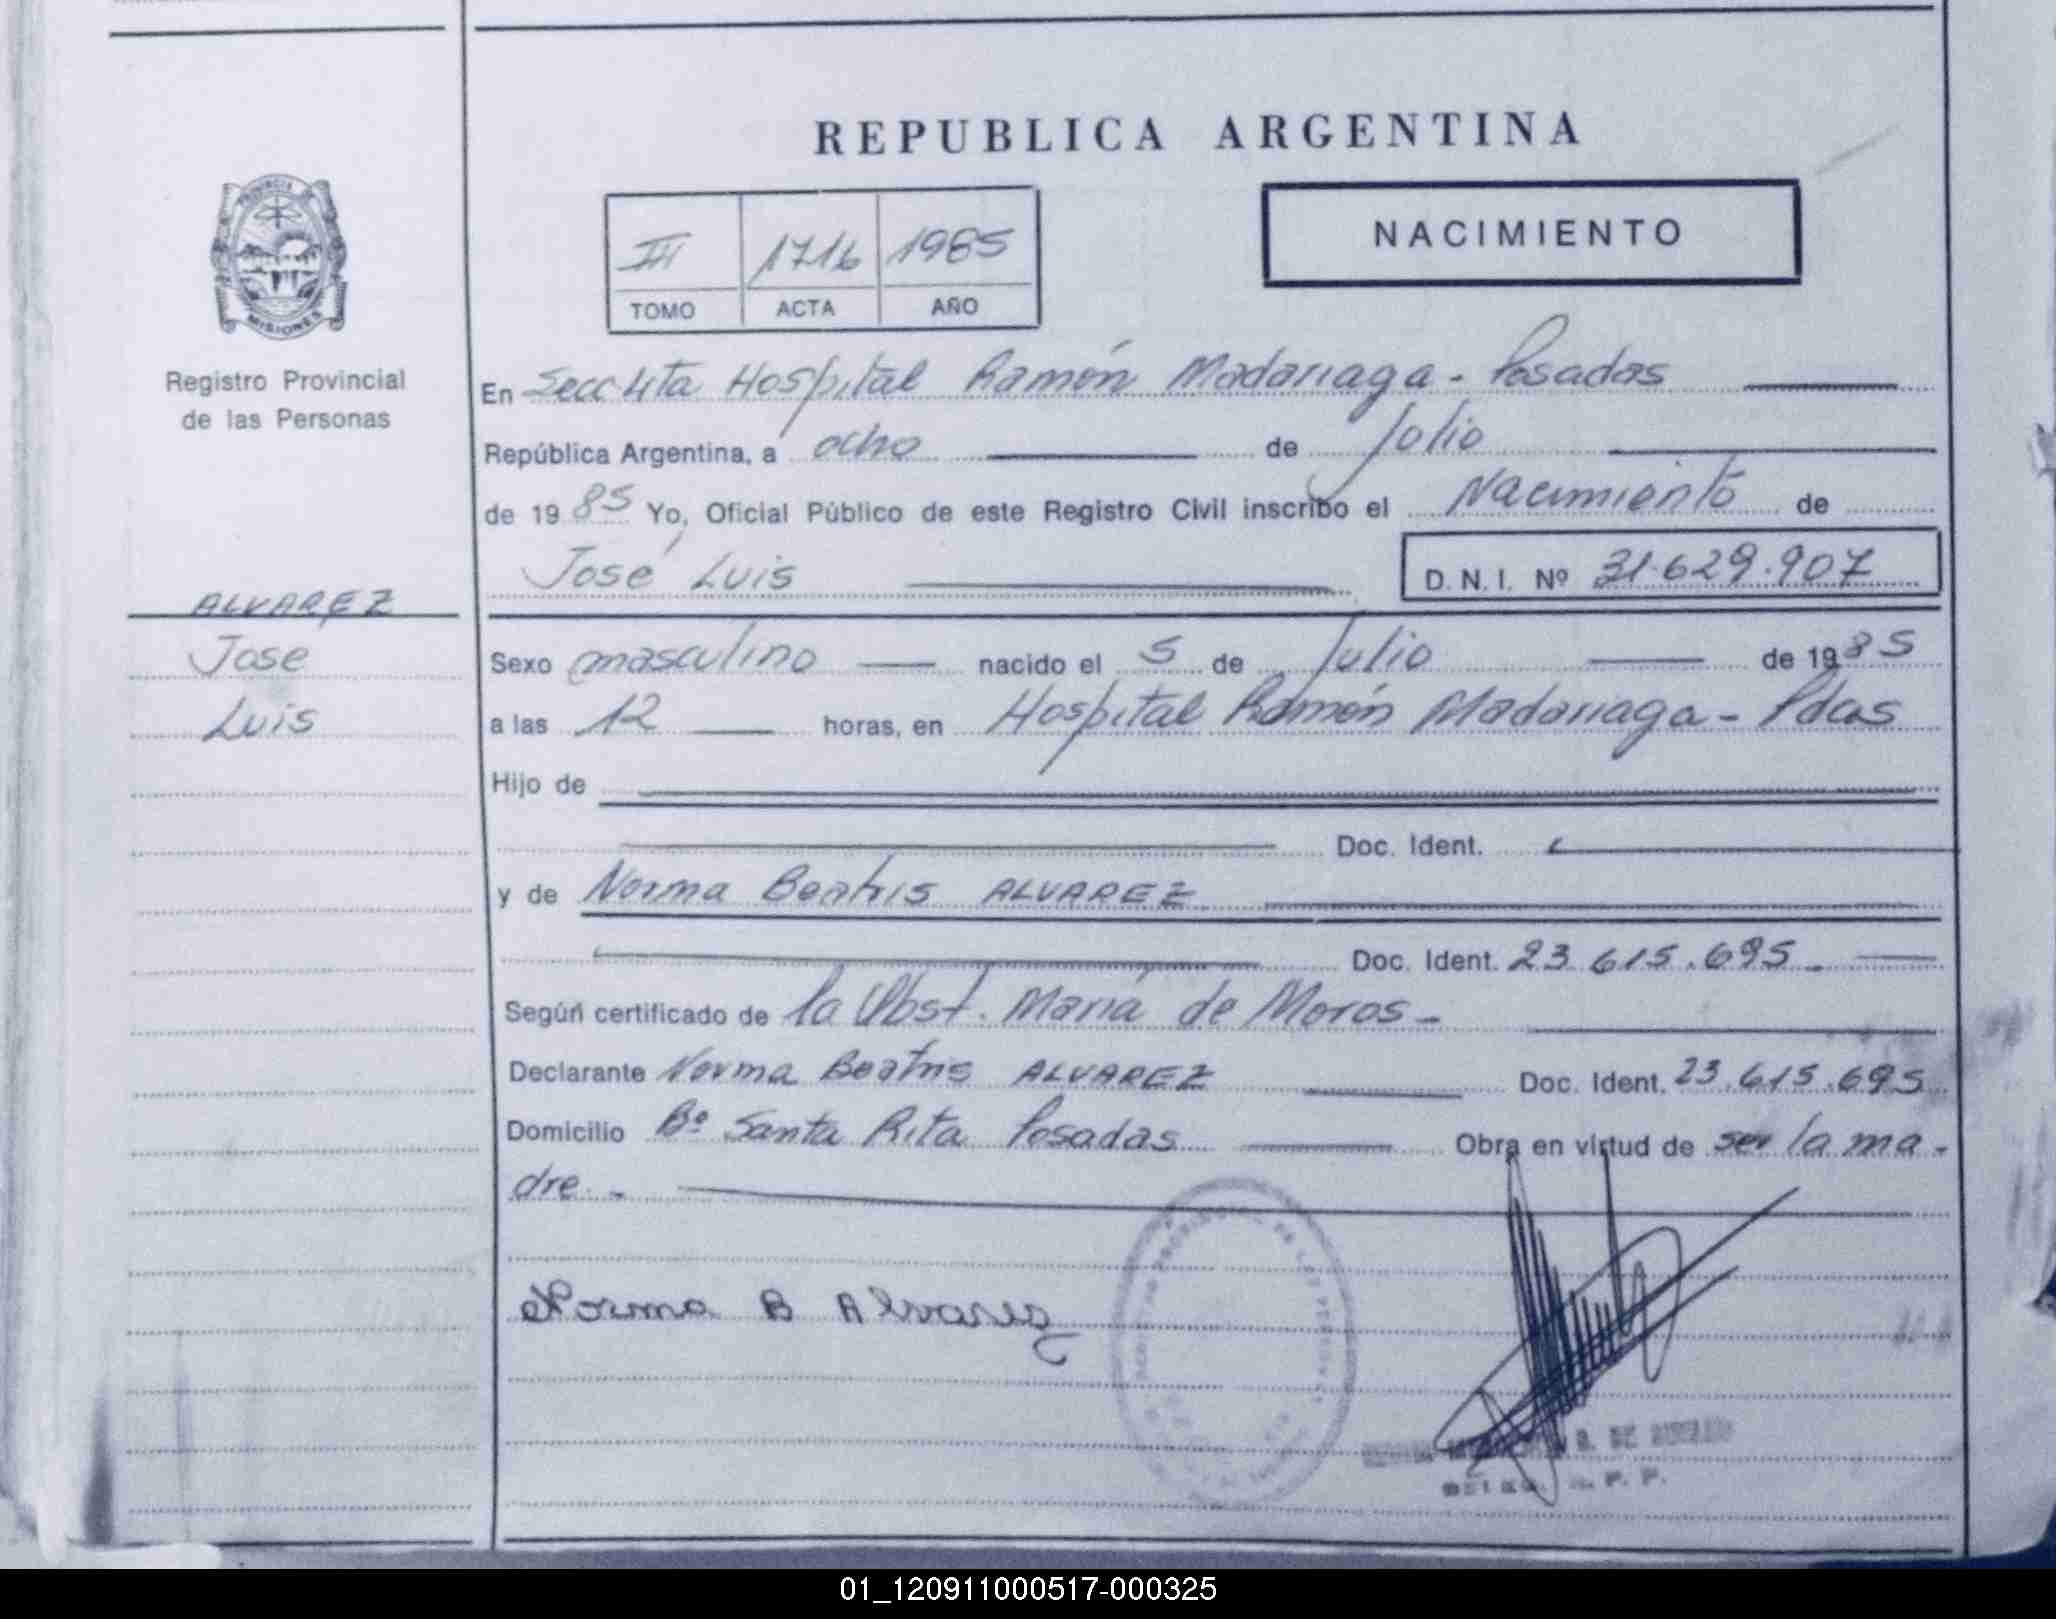 REPUBLICA ARGENTINA
PROVINCIA
MISIONES
Registro Provincial
de las Personas
ALVAREZ
Jose
Luis
III 1716 1985
TOMO ACTA AÑO
NACIMIENTO
En Secc 4ta Hospital Ramón Madariaga - Posadas
República Argentina, a ocho de Julio
de 1985 Yo, Oficial Público de este Registro Civil inscribo el Nacimiento de
José Luis D.N.I. Nº 31.629.907
Sexo masculino nacido el 5 de Julio de 1985
a las 12 horas, en Hospital Ramón Madariaga - Pdas
Hijo de
Doc. Ident.
y de Norma Beatris ALVAREZ
Doc. Ident. 23.615.695.-
Según certificado de la Obst. María de Moros -
Declarante Norma Beatris ALVAREZ Doc. Ident. 23.615.695
Domicilio Bº Santa Rita Posadas Obra en virtud de ser la ma-
dre.-
Norma B Alvarez
01_120911000517-000325